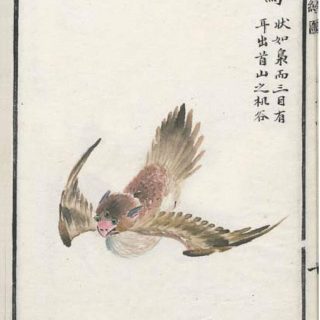 狀如梟而三目有
耳出首山之机谷